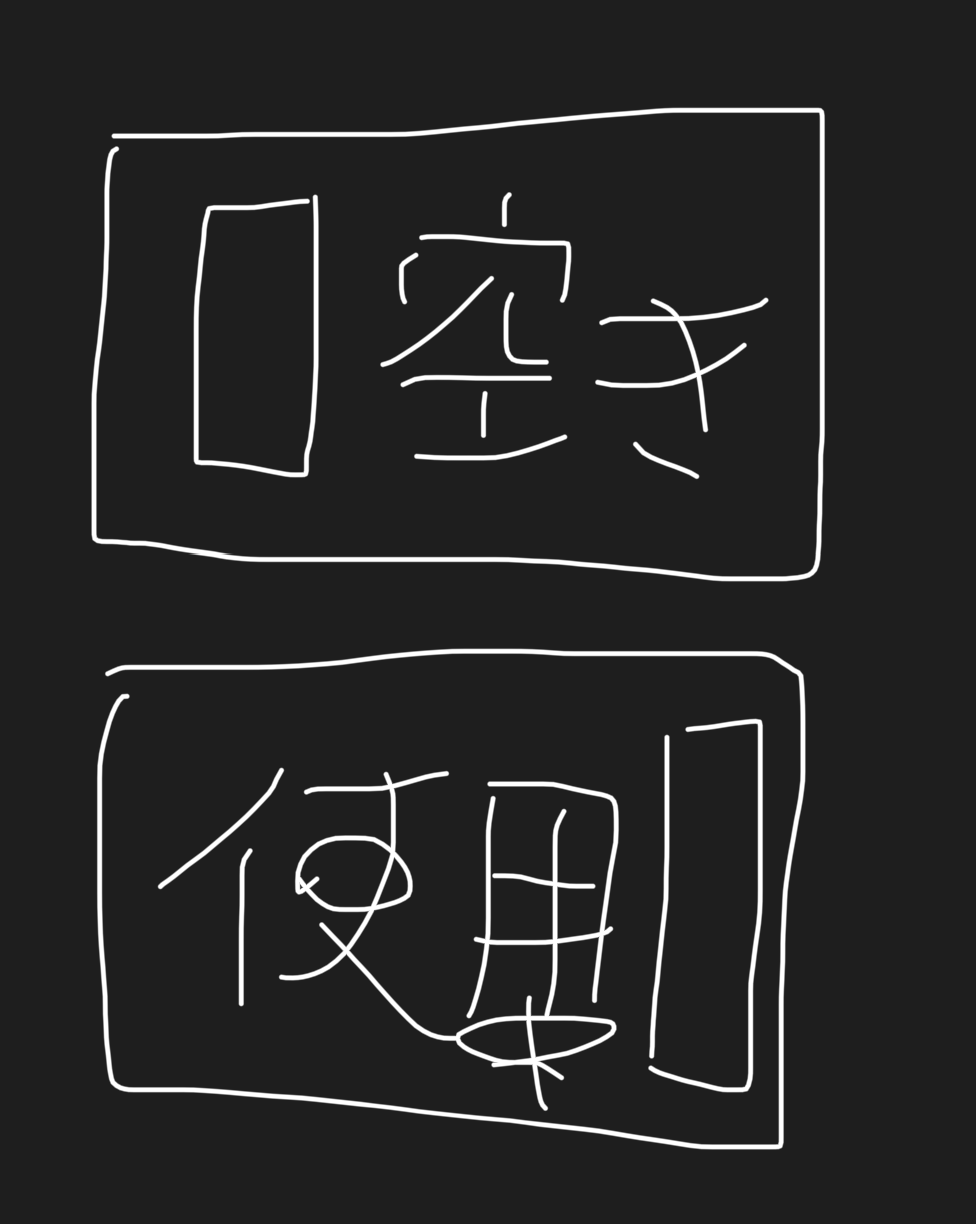 空き
使用中